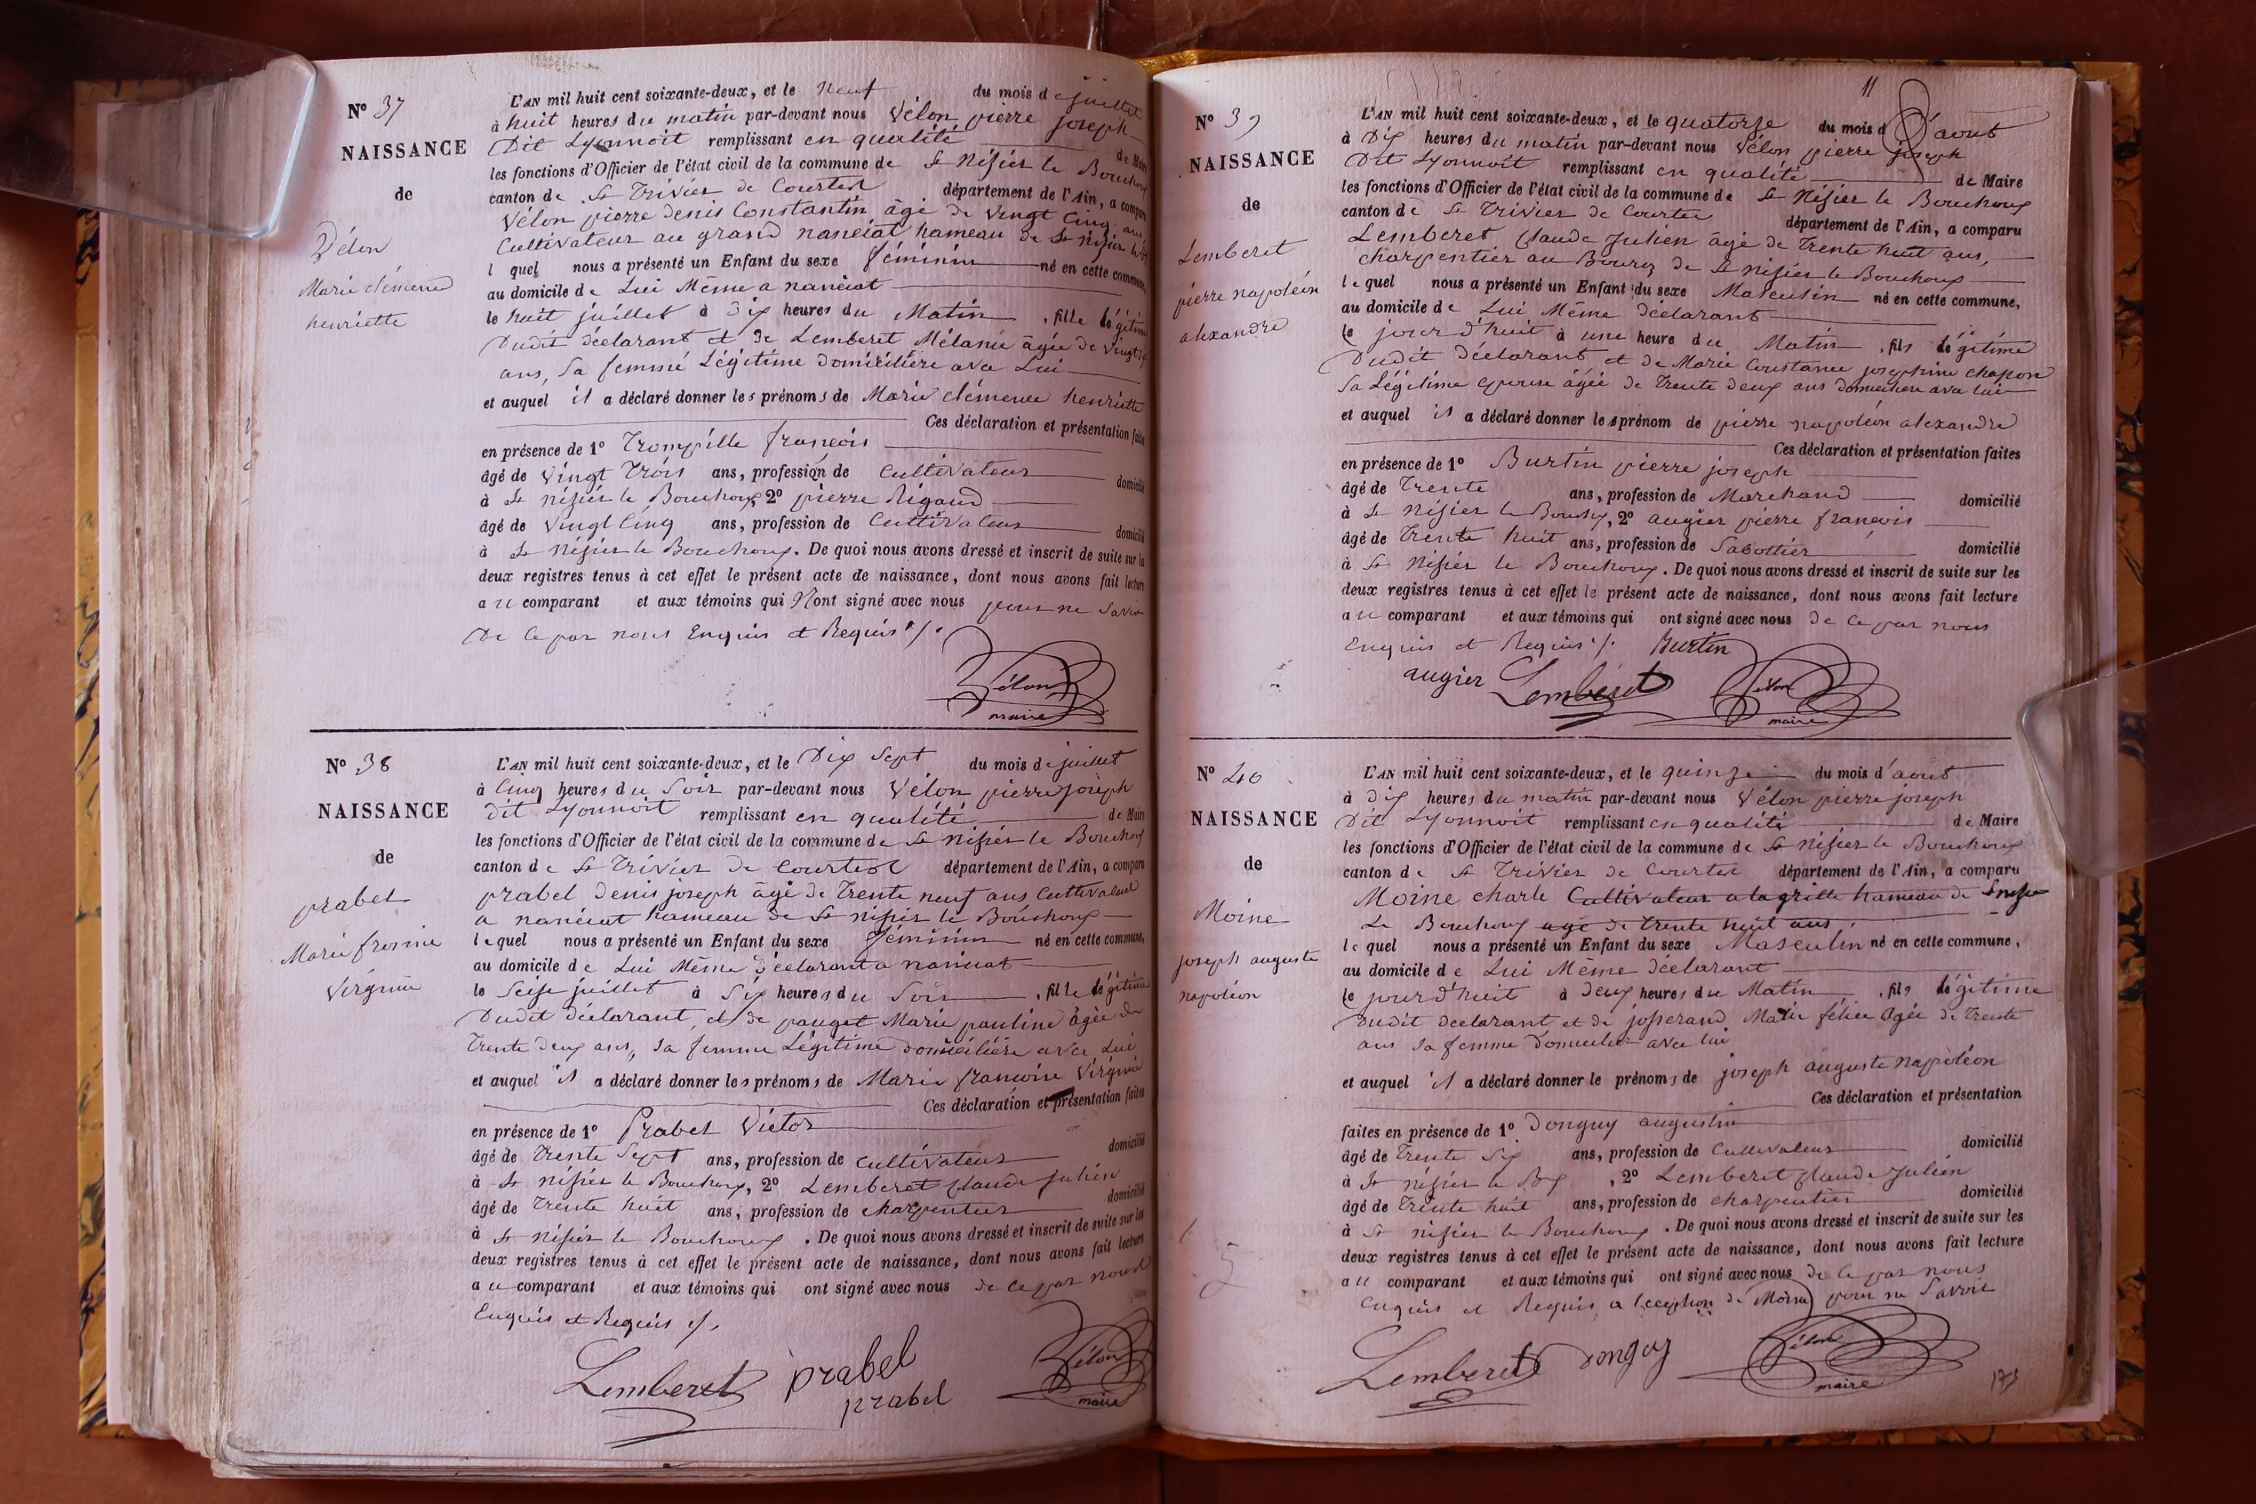 N° 37
NAISSANCE
de
Vélon
Marie clémence
henriette
L'AN mil huit cent soixante-deux, et le neuf du mois de juillet
à huit heures du matin par-devant nous Vélon pierre joseph
Dit Lyonnoit remplissant en qualité de Maire
les fonctions d'Officier de l'état civil de la commune de St Nisier le Bouchoux
canton de St Trivier de Courtes département de l'Ain, a comparu
Vélon pierre denis Constantin âgé de vingt cinq ans
Cultivateur au grand nanciat hameau de St nisier le
l quel nous a présenté un Enfant du sexe féminin né en cette commune,
au domicile de Lui Même a nanciat
le huit juillet à Dix heures du Matin , fille légitime
Dudit déclarant et de Lemberet Mélanie âgée de vingt
ans, Sa femme Légitime domiciliére avec Lui
et auquel il a déclaré donner les prénoms de Marie clémence henriette
Ces déclaration et présentation faites
en présence de 1° Trompille françois
âgé de vingt Trois ans, profession de Cultivateur domicilié
à St nisier le Bouchoux, 2° pierre Rigaud
âgé de vingt Cinq ans, profession de Cultivateur domicilié
à St Nisier le Bouchoux. De quoi nous avons dressé et inscrit de suite sur les
deux registres tenus à cet effet le présent acte de naissance, dont nous avons fait lecture
au comparant et aux témoins qui Nont signé avec nous pour ne Savoir
De Ce par nous Enquis et Requis ./.
Vélon
maire
N° 38
NAISSANCE
de
prabel
Marie
Virginie
L'AN mil huit cent soixante-deux, et le Dix Sept du mois de juillet
à Cinq heures du Soir par-devant nous Vélon pierre joseph
dit Lyonnoit remplissant en qualité de Maire
les fonctions d'Officier de l'état civil de la commune de St nisier le Bouchoux
canton de St Trivier de Courtes département de l'Ain, a comparu
prabel denis joseph âgé de Trente neuf ans Cultivateur
a nanciat hameau de St nisier le Bouchoux
lequel nous a présenté un Enfant du sexe féminin né en cette commune,
au domicile de Lui Même déclarant a nanciat
le Seise juillet à Six heures du Soir , fille légitime
Dudit déclarant, et de pauget Marie pauline âgée de
Trente Deux ans, Sa femme Légitime domiciliére avec Lui
et auquel il a déclaré donner les prénoms de Marie françoise Virginie
Ces déclaration et présentation faites
en présence de 1° Prabel Victor
âgé de Trente Sept ans, profession de Cultivateur domicilié
à St nisier le Bouchoux, 2° Lemberet Claude Julien
âgé de Trente huit ans, profession de charpentier domicilié
à St Nisier le Bouchoux . De quoi nous avons dressé et inscrit de suite sur les
deux registres tenus à cet effet le présent acte de naissance, dont nous avons fait lecture
au comparant et aux témoins qui ont signé avec nous de ce par nous
Enquis et Requis ./.
Lemberet prabel
prabel
Vélon
maire
11
N° 39
NAISSANCE
de
Lemberet
pierre napoléon
alexandre
L'AN mil huit cent soixante-deux, et le quatorze du mois d'août
à Dix heures du matin par-devant nous Vélon pierre joseph
Dit Lyonnoit remplissant en qualité de Maire
les fonctions d'Officier de l'état civil de la commune de St Nisier le Bouchoux
canton de St Trivier de Courtes département de l'Ain, a comparu
Lemberet Claude Julien âgé de Trente huit ans,
charpentier au Bourg de St nisier le Bouchoux
lequel nous a présenté un Enfant du sexe Masculin né en cette commune,
au domicile de Lui Même déclarant
le jour d'huit à une heure du Matin , fils légitime
Dudit déclarant et de Marie Constance josephine chapon
Sa Légitime épouse âgée de Trente deux ans domiciliée avec lui
et auquel il a déclaré donner les prénom de pierre napoléon alexandre
Ces déclaration et présentation faites
en présence de 1° Burtin pierre joseph
âgé de Trente ans, profession de Marchand domicilié
à St Nisier le Bouchx, 2° augier pierre françois
âgé de Trente huit ans, profession de Sabottier domicilié
à St Nisier le Bouchoux. De quoi nous avons dressé et inscrit de suite sur les
deux registres tenus à cet effet le présent acte de naissance, dont nous avons fait lecture
au comparant et aux témoins qui ont signé avec nous de ce par nous
Enquis et Requis ./. Burtin
augier Lemberet Vélon
maire
N° 40
NAISSANCE
de
Moine
joseph auguste
napoléon
L'AN mil huit cent soixante-deux, et le quinze du mois d'août
à dix heures du matin par-devant nous Vélon pierre joseph
Dit Lyonnoit remplissant en qualité de Maire
les fonctions d'Officier de l'état civil de la commune de St Nisier le Bouchoux
canton de St Trivier de Courtes département de l'Ain, a comparu
Moine charle Cultivateur a la grille hameau de St nisier
Le Bouchoux agé de trente huit ans
lequel nous a présenté un Enfant du sexe Masculin né en cette commune,
au domicile de Lui Même déclarant
le jour d'huit à deux heures du Matin , fils légitime
Dudit déclarant et de josserand Marie félice agée de Trente
ans Sa femme domiciliée avec lui
et auquel il a déclaré donner le prénoms de joseph auguste Napoléon
Ces déclaration et présentation
faites en présence de 1° Donguy augustin
âgé de Trente Six ans, profession de Cultivateur domicilié
à St nisier le Bx , 2° Lemberet Claude Julien
âgé de Trente huit ans, profession de charpentier domicilié
à St nisier le Bouchoux . De quoi nous avons dressé et inscrit de suite sur les
deux registres tenus à cet effet le présent acte de naissance, dont nous avons fait lecture
au comparant et aux témoins qui ont signé avec nous de ce par nous
Enquis et Requis a lexception de Moine pour ne Savoir
Lemberet Donguy Vélon
maire